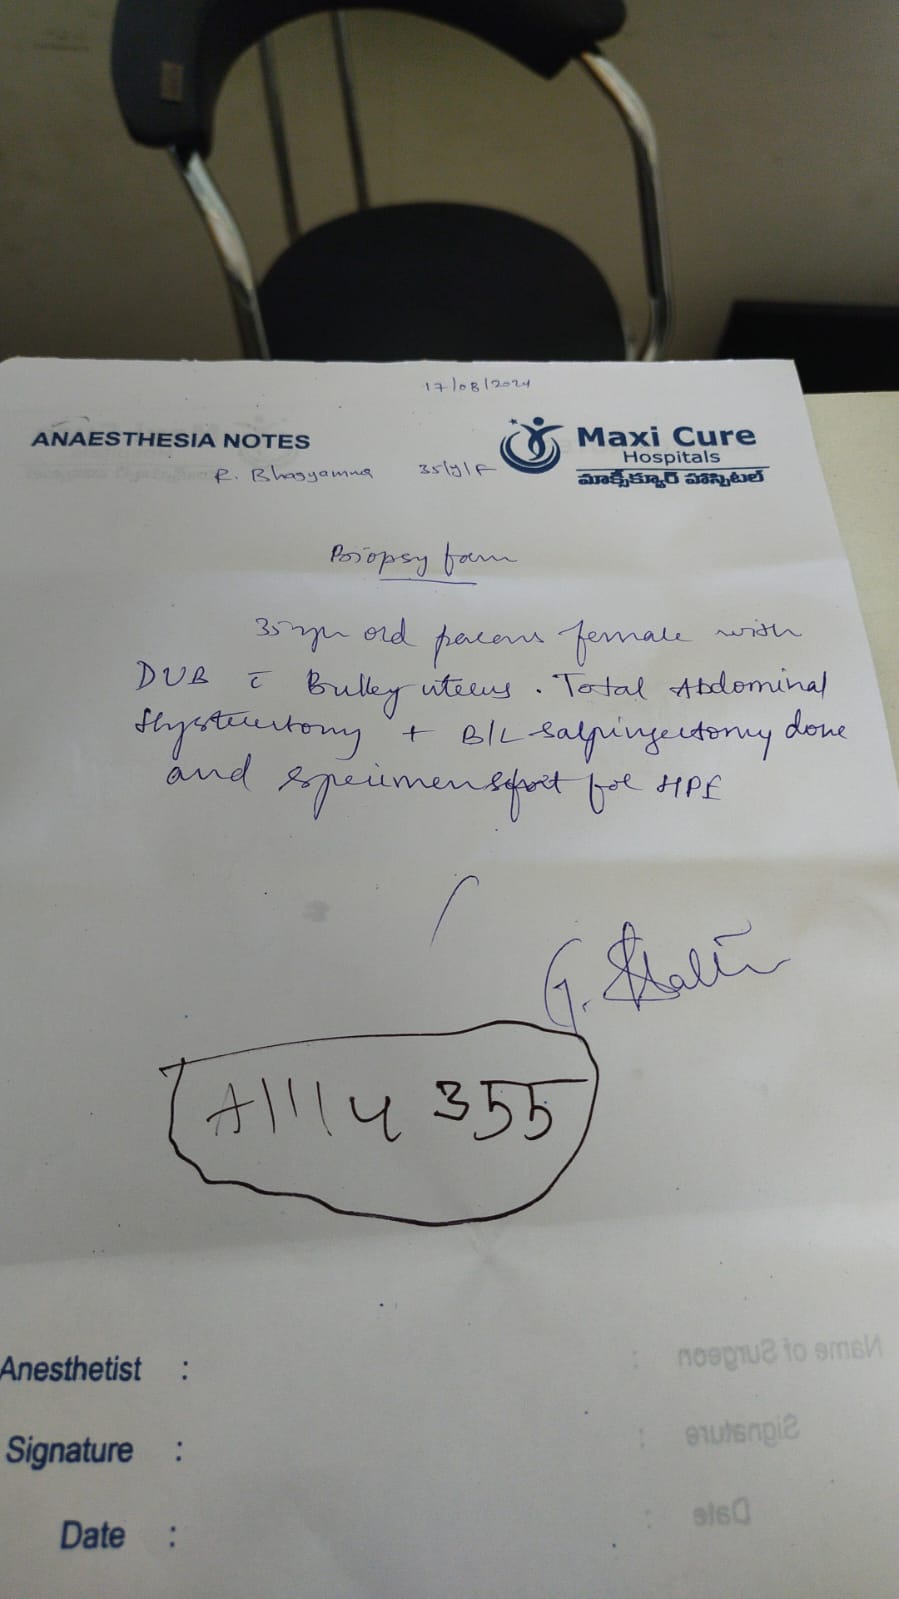 17/08/2024
ANAESTHESIA NOTES
Maxi Cure
Hospitals
మాక్సీక్యూర్ హాస్పిటల్
R. Bhagyamma 35/y/F
Biopsy form
35 old female with
DUB c̄ Bulky uterus. Total Abdominal
Hysterectomy + B/L Salpingectomy done
and specimen for HPE
G.
A1114355
Anesthetist :
Signature :
Date :
Name of Surgeon :
Signature :
Date :